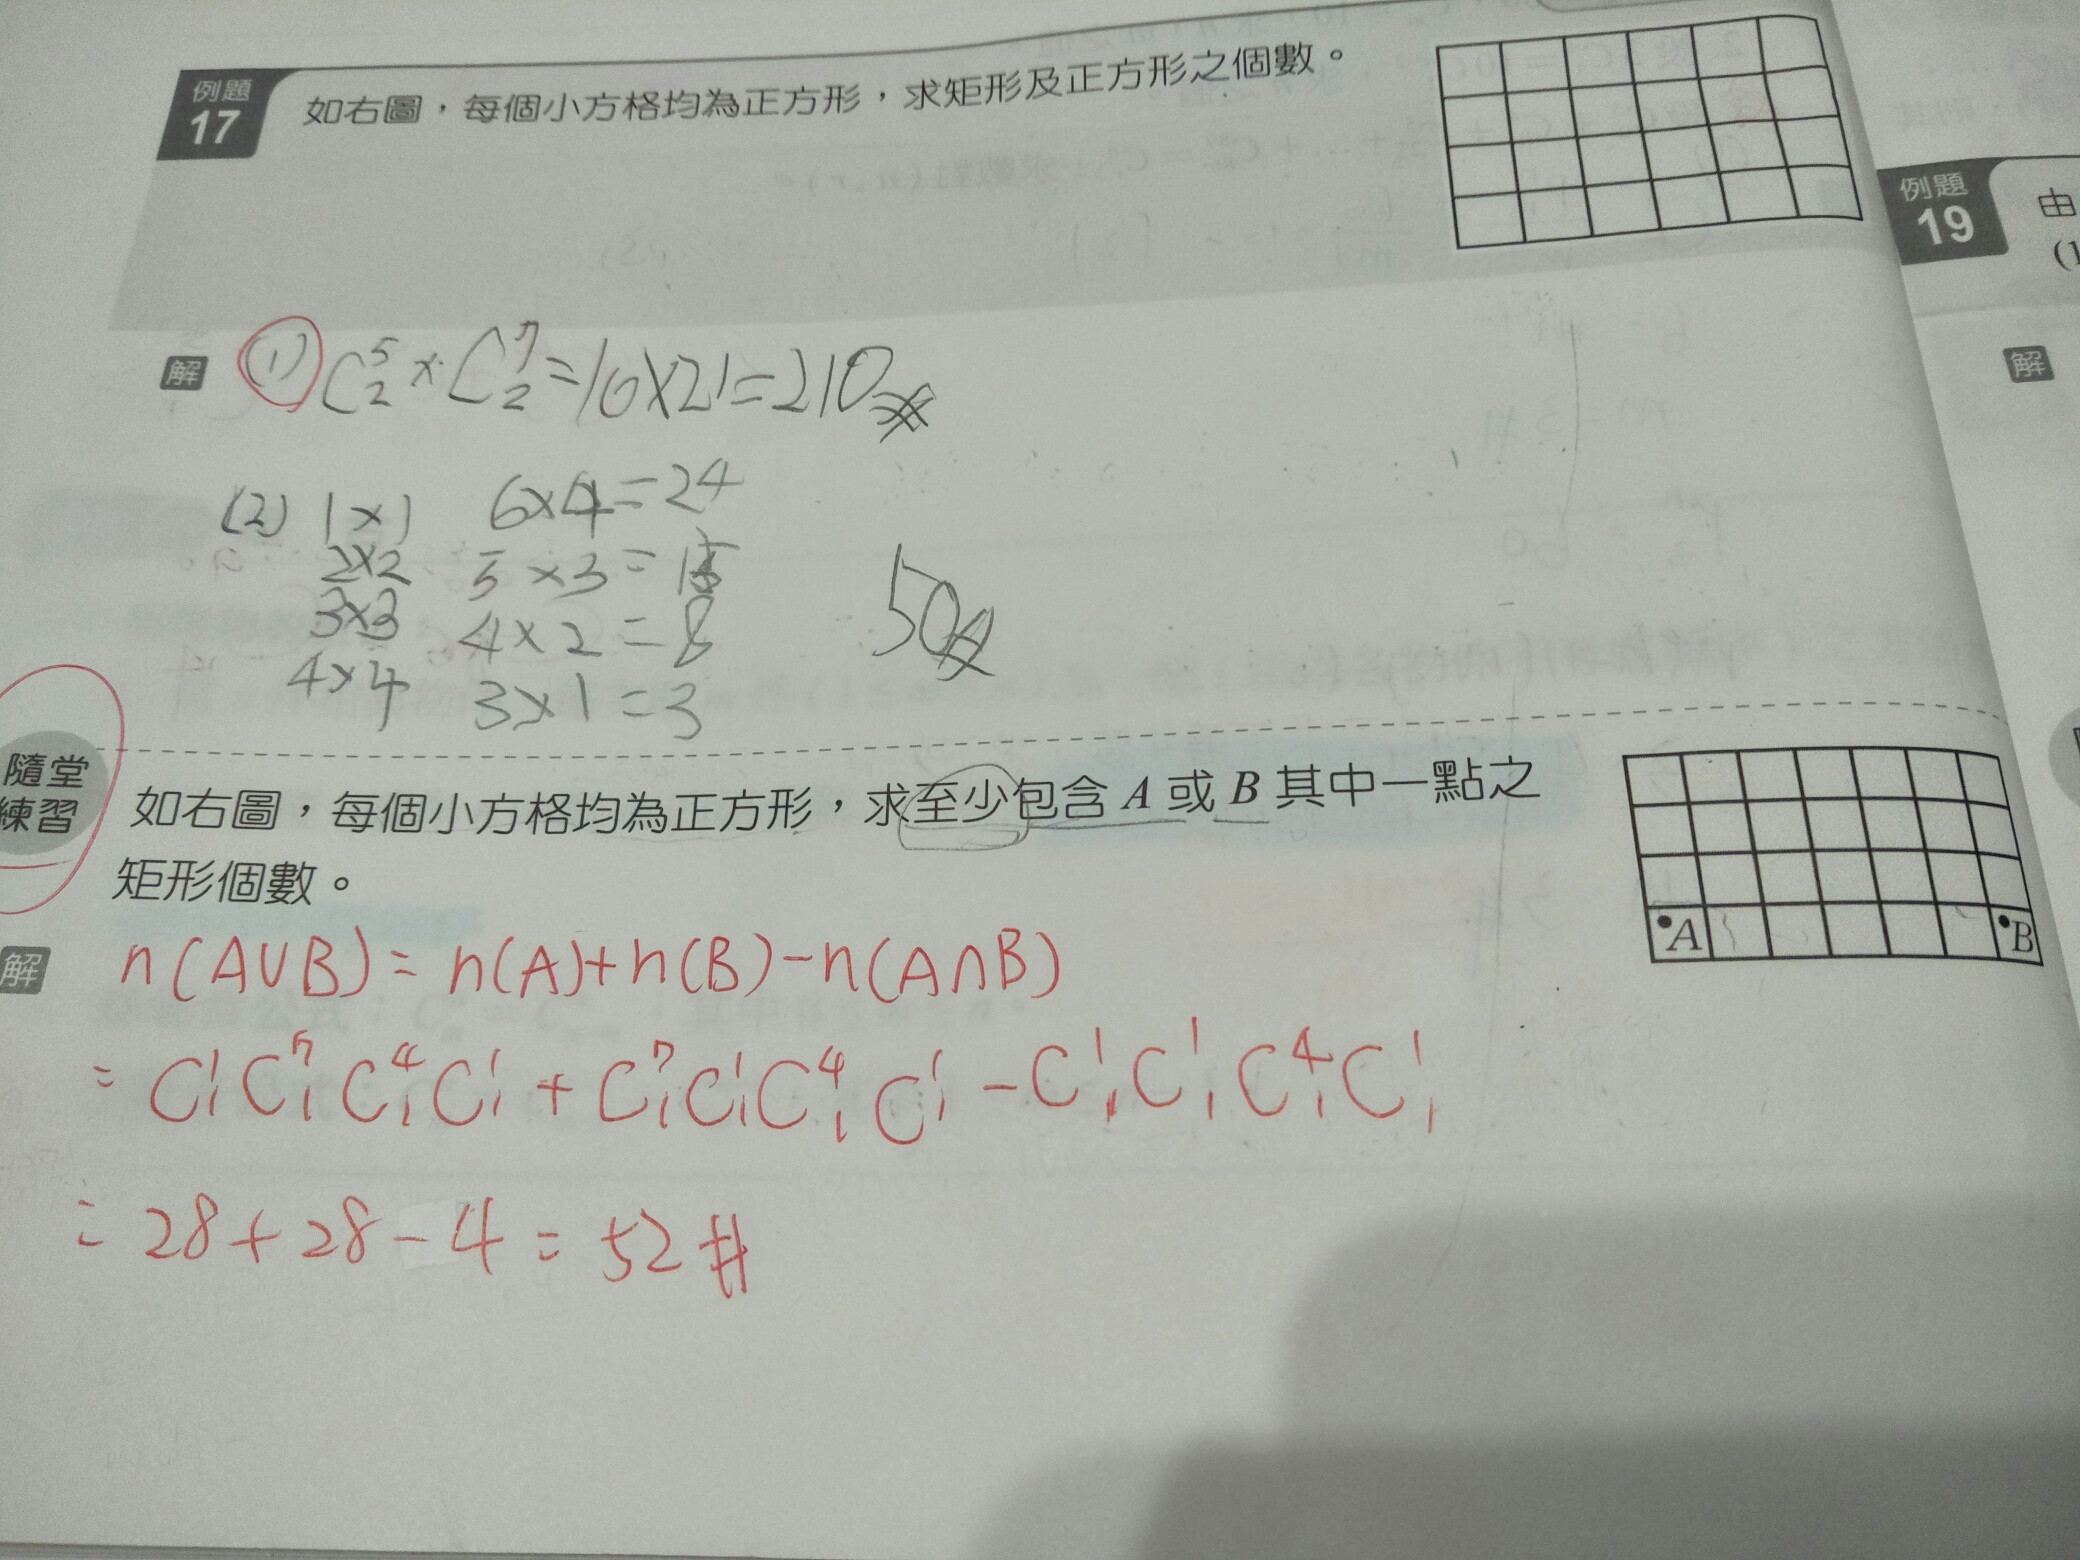 例題
17
如右圖，每個小方格均為正方形，求矩形及正方形之個數。
解 (1) C⁵₂ × C⁷₂ = 10×21 = 210
(2) 1×1 6×4=24
2×2 5×3=15
3×3 4×2=8
4×4 3×1=3
50
隨堂
練習
如右圖，每個小方格均為正方形，求至少包含 A 或 B 其中一點之
矩形個數。
A B
解 n(A∪B)=n(A)+n(B)-n(A∩B)
= C¹₁C⁷₁C⁴₁C¹₁ + C⁷₁C¹₁C⁴₁C¹₁ - C¹₁C¹₁C⁴₁C¹₁
= 28+28-4=52 #
例題
19
由
(1
解